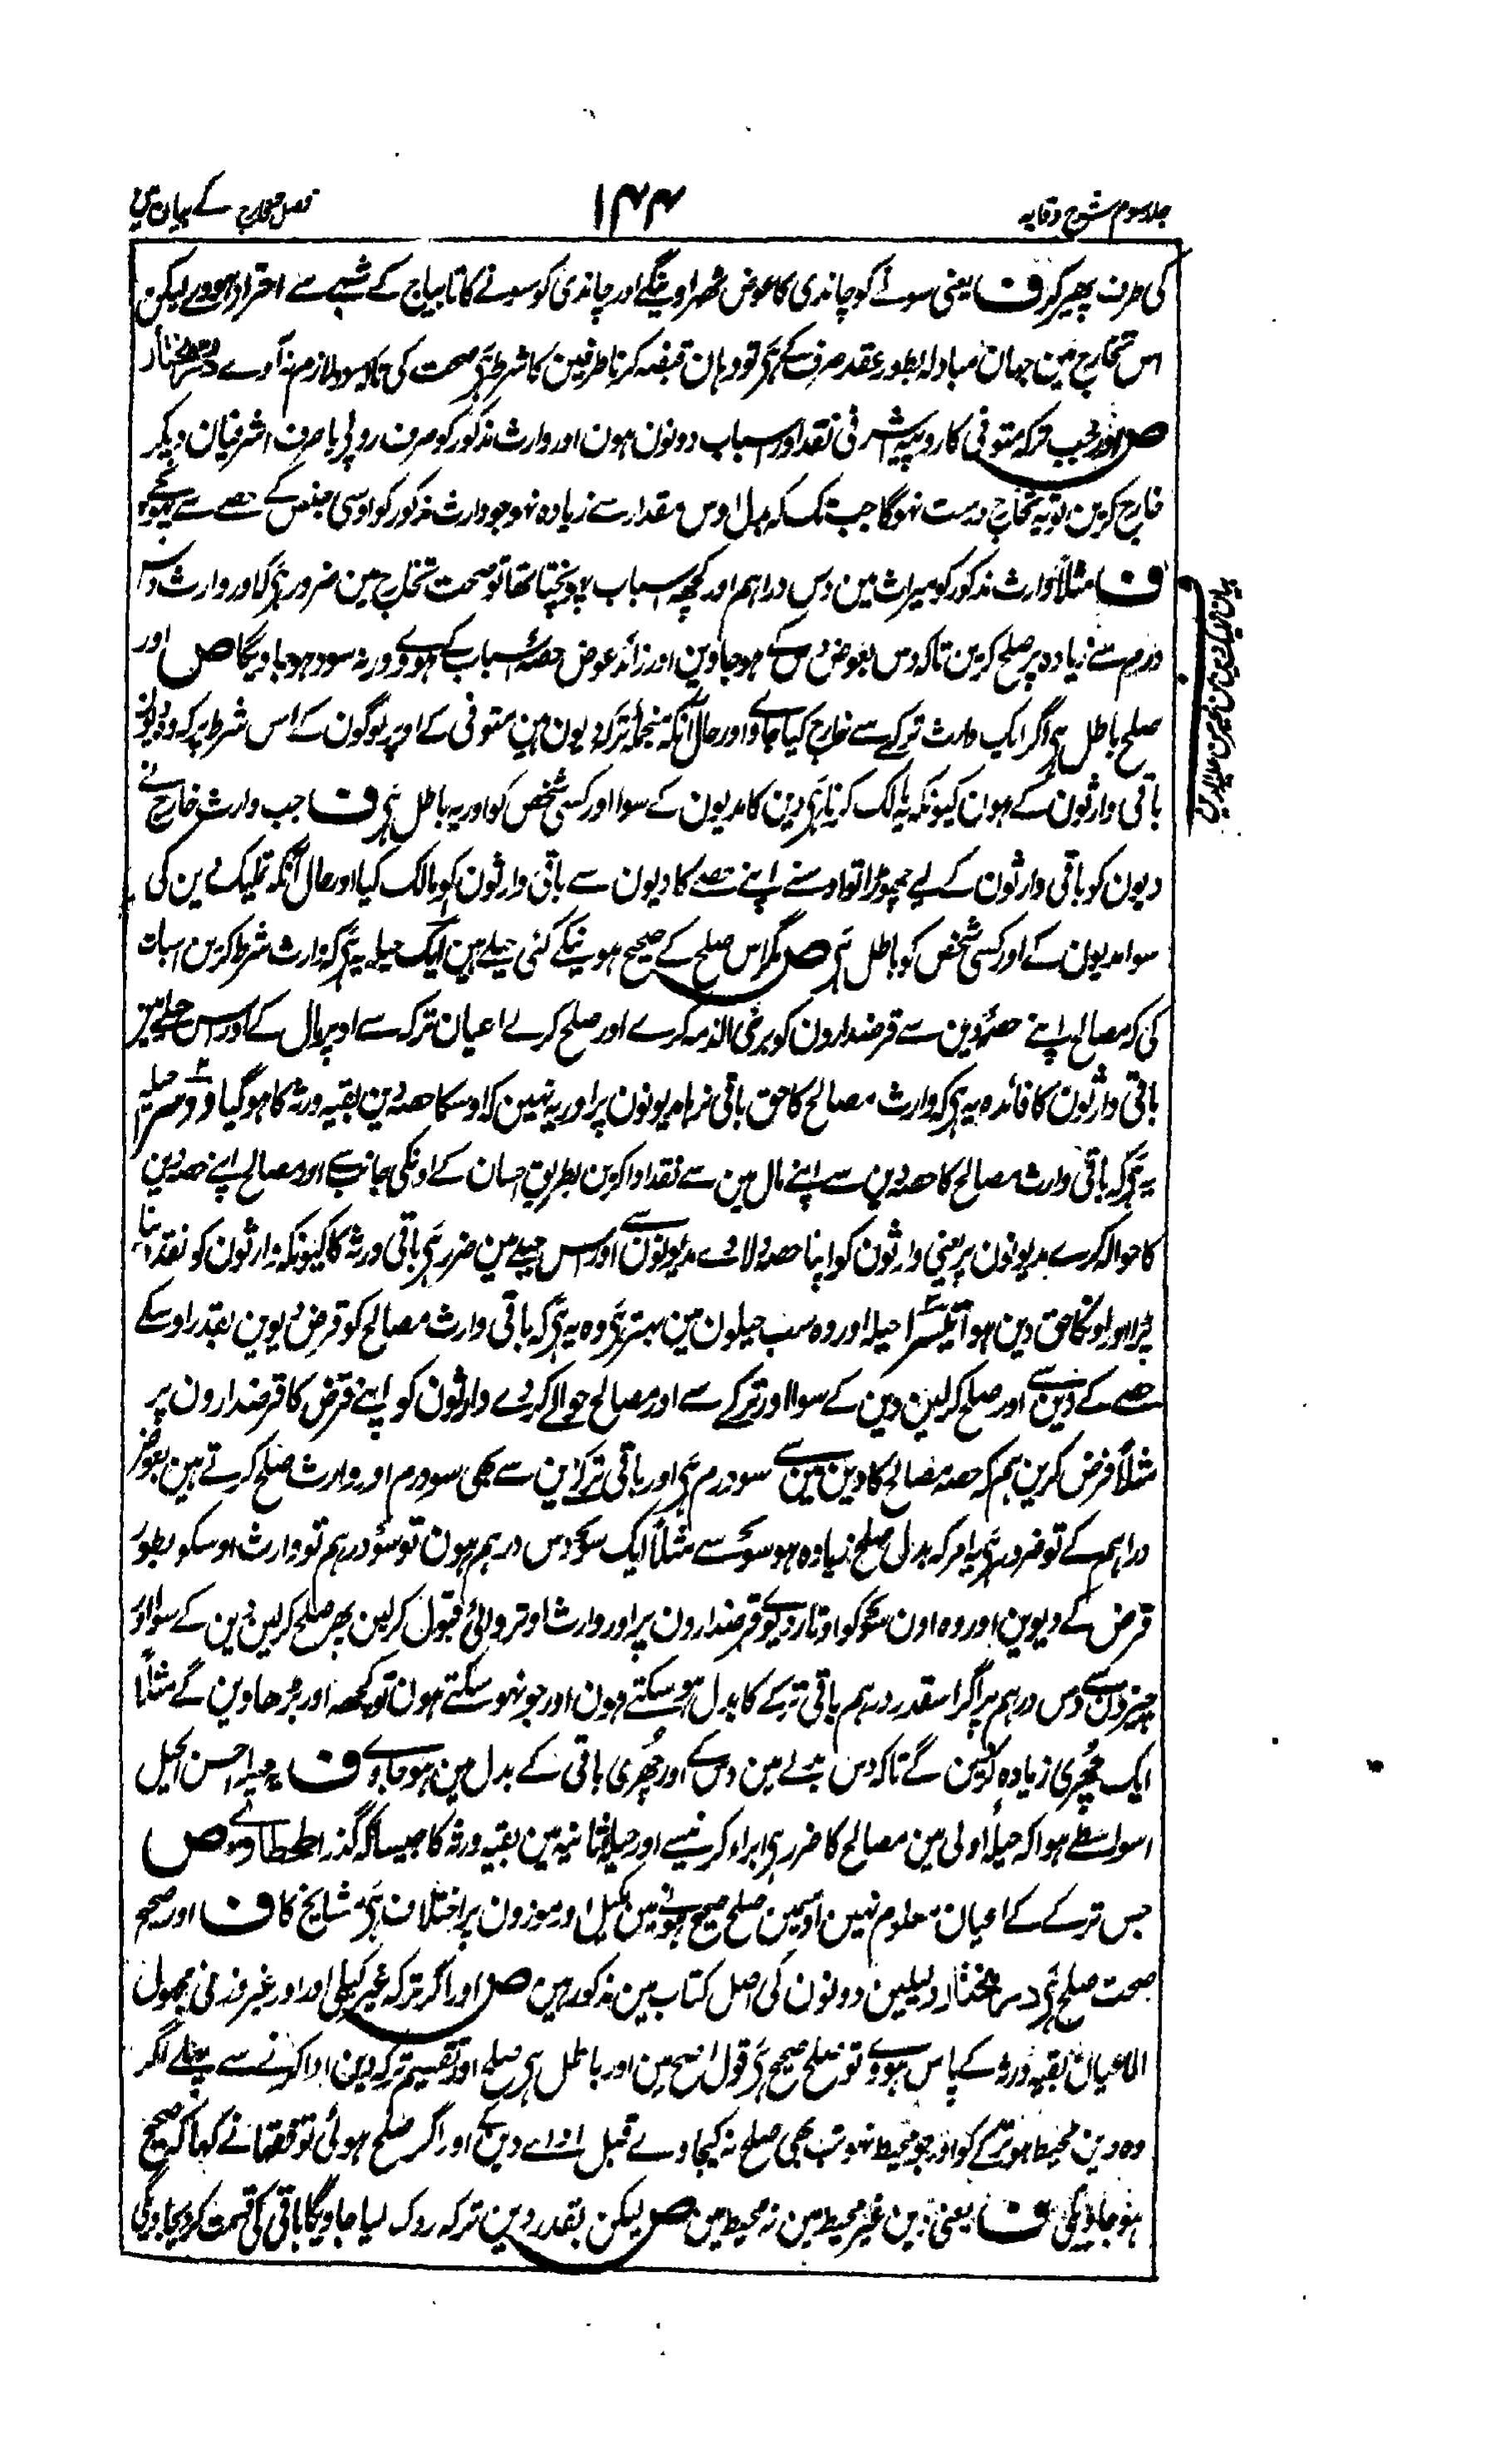 جلد سوم شرح وقایہ
۱۴۴
فصل تخارج کے بیان مین
کی طرف پھیر کر ف یعنی سونے کو چاندی کا عوض ٹھہراوینگے اور چاندی کو سونے کا تا بیاج کے شبہے سے احتراز ہووے لیکن
اس تخارج مین جہان مبادلہ بطور عقد صرف کے ہی تو وہان قبضہ کرنا طرفین کا شرط ہی صحت کی تاکہ سود لازم نہ آوے درمختار
ص اور جب ترکہ متوفی کا روپیہ اشرفی نقد اور اسباب دونون ہون اور وارث مذکور کو صرف روپی یا صرف اشرفیان دیکر
خارج کرین تو یہ تخارج درست نہوگا جب تک کہ بدل اوس مقدار سے زیادہ نہو جو وارث مذکور کو اوسی جنس کے حصے سے پہونچے
ف مثلاً وارث مذکور کو میراث مین دس دراہم اور کچھ اسباب پہونچتا تھا تو صحت تخارج مین ضرور ہی کہ اور وارث دس
درم سے زیادہ پر صلح کرین تاکہ دس بعوض دس کے ہوجاوین اور زائد عوض حصۂ اسباب کے ہووے ورنہ سود ہوجاویگا ص اور
صلح باطل ہی اگر ایک وارث ترکے سے خارج کیا جاوے اور حال آنکہ منجملۂ ترکہ دیون ہین متوفی کے اوپر لوگون کے اس شرط پر کہ وہ دیون
باقی وارثون کے ہون کیونکہ یہ مالک کرنا ہی دین کا مدیون کے سوا اور کسی شخص کو اور یہ باطل ہی ف جب وارث خارج نے
دیون کو باقی وارثون کے لیے چھوڑا تو اوسنے اپنے حصے کا دیون سے باقی وارثون کو مالک کیا اور حال آنکہ تملیک دین کی
سوا مدیون کے اور کسی شخص کو باطل ہی ص مگر اس صلح کے صحیح ہونیکے کئی حیلے ہین ایک حیلہ یہ ہی کہ وارث شرط کرین اسبات
کی کہ مصالح اپنے حصۂ دین سے قرضدارون کو بری الذمہ کرے اور صلح کرلے اعیان ترکہ سے اوپر مال کے اور اس حیلے مین
باقی وارثون کا فائدہ یہ ہی کہ وارث مصالح کا حق باقی نرہا مدیونون پر اور یہ نہین کہ اوسکا حصہ دین بقیہ ورثہ کا ہوگیا دوسرا حیلہ
یہ ہی کہ باقی وارث مصالح کا حصہ دین سے اپنے مال مین سے نقد ادا کرین بطریق احسان کے اونکی جانب سے اور مصالح اپنے حصہ دین
کا حوالہ کرے مدیونون پر یعنی وارثون کو اپنا حصہ دلادے مدیونون سے اور اس حیلے مین ضرر ہی باقی ورثہ کا کیونکہ وارثون کو نقد دینا
پڑا اور اونکا حق دین ہوا تیسرا حیلہ اور وہ سب حیلون مین بہتر ہی وہ یہ ہی کہ باقی وارث مصالح کو قرض دیوین بقدر اوسکے
حصے کے دین سے اور صلح کرلین دین کے سوا اور ترکے سے اور مصالح حوالے کردے وارثون کو اپنے قرض کا قرضدارون پر
مثلاً فرض کرین ہم کہ حصہ مصالح کا دین مین سے سو درم ہی اور باقی ترکے مین سے بھی سو درم اور وارث صلح کرتے ہین بعوض
دراہم کے تو ضرور ہی یہ امر کہ بدل صلح زیادہ ہو سو سے مثلاً ایک سو دس درہم ہون تو سو درہم تو وارث اوسکو بطور
قرض کے دیوین اور وہ اون سو کو اوتار دیوے قرضدارون پر اور وارث اوتروائی قبول کرلین پھر صلح کرلین دین کے سوا اور
چیزون سے دس درہم پر اگر اسقدر درہم باقی ترکے کا بدل ہوسکتے ہون اور جو نہو سکتے ہون تو کچھ اور بڑھاوین گے مثلاً
ایک چھری زیادہ کرین گے تاکہ دس بدلے مین دس کے اور چھری باقی کے بدل مین ہوجاوے ف یہ حیلہ احسن الحیل
اسواسطے ہوا کہ حیلۂ اولی مین مصالح کا ضرر ہی ابراء کرنیسے اور حیلۂ ثانیہ مین بقیہ ورثہ کا جیسا کہ گذرا طحطاوی ص
جس ترکے کے اعیان معلوم نہین اوسمین صلح صحیح ہونے مین مکیل اور موزون پر اختلاف ہی مشایخ کا ف اور صحیح
صحت صلح ہی درمختار دلیلین دونون کی اصل کتاب مین مذکور ہین ص اور اگر ترکہ غیر کیلی اور اور غیر وزنی مجہول
الاعیان بقیہ ورثہ کے پاس ہووے تو صلح صحیح ہی قول اصح مین اور باطل ہی صلح اور تقسیم ترکہ دین ادا کرنے سے پہلے اگر
وہ دین محیط ہو ترکے کو اور جو محیط نہو تب بھی صلح نہ کیجاوے قبل اداے دین کے اور اگر صلح ہوئی تو فقہا نے کہا کہ صحیح
ہوجاویگی ف یعنی دین غیر محیط مین نہ محیط مین ص لیکن بقدر دین ترکہ روک لیا جاویگا باقی کی قسمت کردیجاویگی